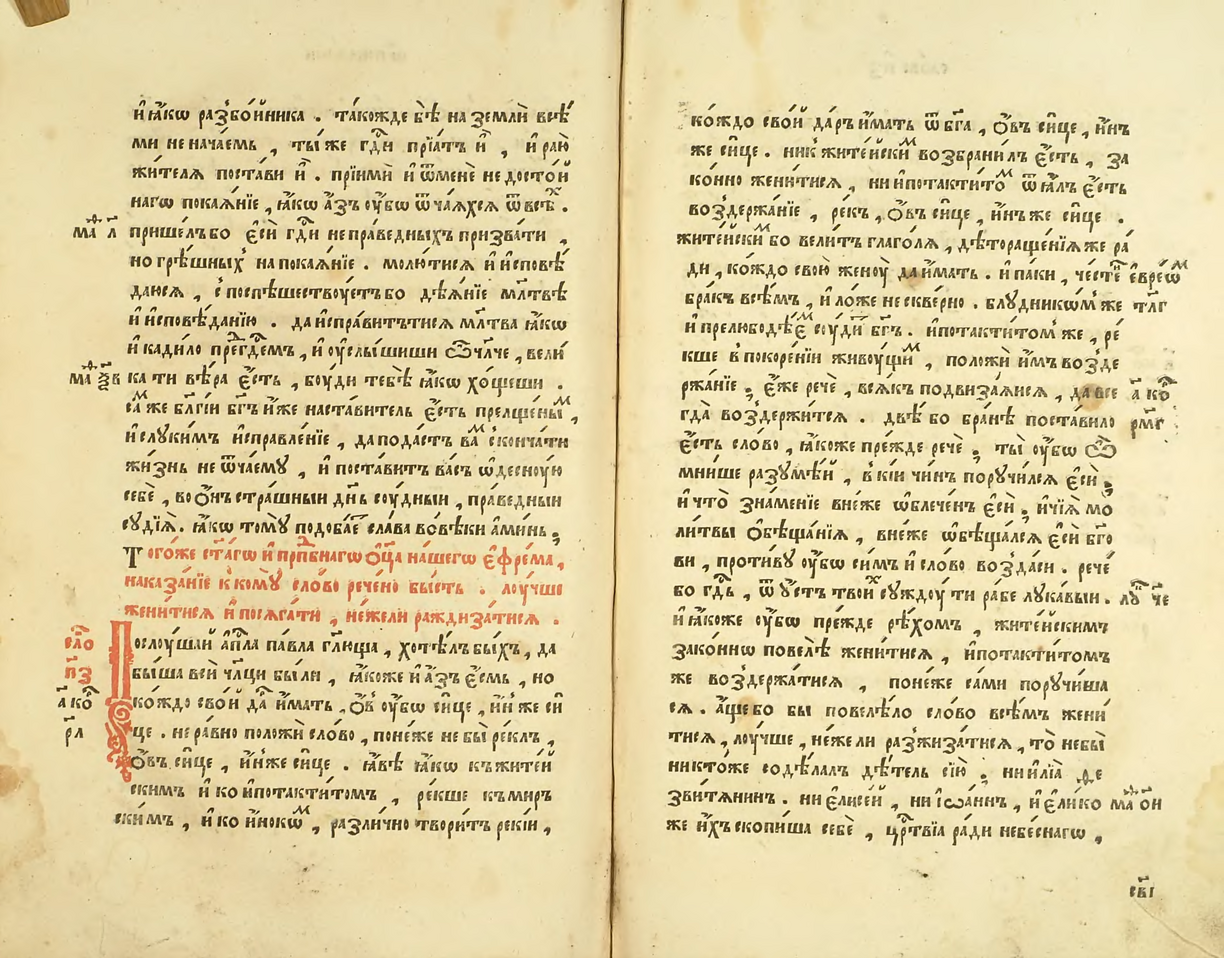 и҆ ꙗ҆́кѡ разбо́йника . та́кожде бѣ̀ на землѝ всѣ́
ми не нача́емь , ты́ же гд҇и прїѧ́тъ и҆̀ , и҆ раю̀
жи́телѧ поста́ви и҆̀ . прїимѝ и҆ ѿменѐ недосто́й
наго покаѧ́нїе , ꙗ҆́кѡ а҆́зъ ᲂу҆́бѡ ѿча́ѧхсѧ ѿ всѣ́х .
ма л҃ прише́лъ бо є҆сѝ гд҇и непра́ведныхъ призва́ти ,
но грѣ́шныхъ на покаѧ́нїе . молю́тисѧ и҆ и҆сповѣ́
даюсѧ , споспѣшествꙋ́етъ бо дѣѧ́нїе мл҃твѣ
и҆ и҆сповѣ́данїю . да и҆спра́витътисѧ мл҃тва ꙗ҆́кѡ
и҆ кади́ло пред гд҇емъ , и҆ ᲂу҆слы́шиши ѽ чл҃че , вели́
ма ѯв ка ти вѣ́ра є҆́сть , бꙋ́ди тебѣ̀ ꙗ҆́кѡ хо́щеши .
са́м же бл҃гі́и бг҃ъ и҆́же наста́витель є҆́сть прелще́ным ,
и҆ слꙋки́мъ и҆справле́нїе , да пода́стъ ва́м сконча́ти
жи́знь не ѿча́емꙋ , и҆ поста́витъ ва́съ ѡ҆деснꙋ́ю
себѐ , во ѻ҆́нъ стра́шныи дн҃ь сꙋ́дныи , пра́ведныи
сꙋдїѧ̀ . ꙗ҆́кѡ томꙋ̀ подоба́ет сла́ва во вѣ́ки а҆ми́нь .
Того́же ст҃а́гѡ и҆ прп҇бнагѡ ѻ҆ц҃а на́шегѡ є҆фре́ма ,
наказа́нїе к комꙋ̀ сло́во рече́но бы́сть . лꙋ́чше
жени́тисѧ и҆ посѧга́ти , не́жели раждиза́тисѧ .
сло́ Послꙋ́шай а҆пⷭ҇ла па́вла гл҃юща , хотѣ́лъ бы́хъ , да
пз бы́ша всѝ чл҃цы бы́ли , ꙗ҆́коже и҆ а҆́зъ є҆́смь , но
а҃ ко ко́ждо сво́й да́р и҆́мать , ѻ҆́в ᲂу҆́бѡ си́це , и҆́н же си́
рл це . не ра́вно положѝ сло́во , поне́же не бы̀ ре́клъ ,
ѻ҆́въ си́це , и҆́нже си́це . ꙗ҆́вѣ ꙗ҆́кѡ къ жите́й
скимъ и҆ ко и҆потакти́томъ , ре́кше къ мир
ски́мъ , и҆ ко и҆́нокѡм , разли́чно твори́тъ ре́кїи ,
ко́ждо сво́й да́ръ и҆́мать ѿ бг҃а , ѻ҆́въ си́це , и҆́нъ
же си́це . ни к жите́йским возбрани́лъ є҆́сть , за
ко́нно жени́тисѧ , ни и҆потакти́том ѿꙗ́лъ є҆́сть
воздержа́нїе , ре́къ , ѻ҆́въ си́це , и҆́нъ же си́це .
жите́йским бо вели́тъ глаго́лѧ , дѣтораще́нїѧ же ра́
ди , ко́ждо свою̀ женꙋ̀ да и҆́мать . и҆ па́ки , честѐн є҆вре́ѡм
бра́къ всѣ́мъ , и҆ ло́же не скве́рно . блꙋ́дникѡм же тлг
и҆ прелюбодѣ́ем сꙋ́дит бг҃ъ . и҆потакти́том же , ре́
кше в покоре́нїи живꙋ́щим , положѝ и҆́мъ возде
ржа́нїе , є҆́же речѐ , всѧ́къ подвиза́ѧисѧ , да все а҃ ко
гда̀ воздержи́тсѧ . двѣ́ бо бра́нѣ поста́вило рмг
є҆́сть сло́во , ꙗ҆́коже пре́жде речѐ , ты̀ ᲂу҆́бѡ ѽ
мни́ше разꙋмѣ́й , в кі́и чи́нъ порꙋчи́лсѧ є҆сѝ ,
и҆ что̀ зна́менїе вне́же ѡ҆блече́нъ є҆сѝ , и҆ чїѧ̀ мо
ли́твы ѻ҆бѣща́нїѧ , вне́же ѡ҆бѣща́лсѧ є҆сѝ бг҃о
ви , проти́вꙋ ᲂу҆́бѡ си́мъ и҆ сло́во возда́си . речѐ
бо гд҇ь , ѿ ᲂу҆́стъ твои́х сꙋждꙋ́ ти ра́бе лꙋка́выи . лꙋ че
и҆ ꙗ҆́коже ᲂу҆́бѡ пре́жде рѣ́хомъ , жите́йскимъ
зако́ннѡ повелѣ̀ жени́тисѧ , и҆потакти́томъ
же воздержа́тисѧ , поне́же са́ми порꙋчи́ша
сѧ . а҆́ще бо бы повелѣ́ло сло́во всѣ́мъ жени́
тисѧ , лꙋ́чше , не́жели разжиза́тисѧ , то̀ небы̀
никто́же содѣ́лалъ дѣ́тель сїю̀ , ни и҆лїа̀ ѳе
звитѧ́нинъ . ни є҆лисе́й , ни і҆ѡа́ннъ , и҆ є҆ли́ко ма ѻи
же и҆́хъ скопи́ша себѐ , црⷭ҇твїа ра́ди небе́снагѡ ,
свı